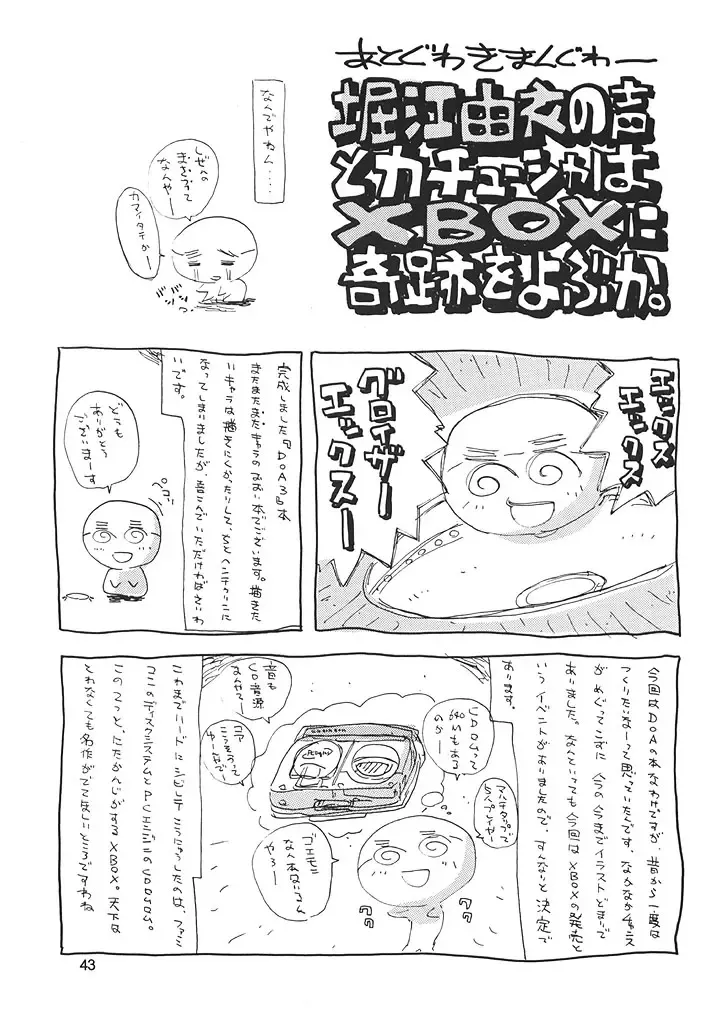 あとぐわきまんぐわー
堀江由衣の声
とカチューシャは
XBOXに
奇跡をよぶか。
なんでやねん・・・・
しぜんの
まなぶって
なんやー
カマイタチかー
エックス
エックス
エックス
エックス
グロイザー
エックスー
完成しました『DOA3』本
またまたまたキャラのみみい本でございます。描きた
いキャラは描きにくかったりして、ちとヘンチクリンに
なってしまいましたが、喜こんでいただければさいわ
いです。
どうも
ありがとう
ございまーす
今回はDOAの本なわけですが、昔から一度は
つくりたいなーって思っていたんです。なかなかチャンス
がめぐってこずに今の今までイラストどまりで
ありました。なんといっても今回はXBOXの発売と
いうイベントがありましたので、すんなりと決定で
あります。
CDROMって
540Mもある
のかー
音も
CD音源
なんやてー
コア
こうそうって
ゆーなぞ
アルチタップで
5人プレイヤー
ゴエモン
なん本はいるん
やろー
これまでハードにシビレてこうにゅうしたのは、ファミ
コンのディスクシステムとPCエンジンのCDROMROM。
このてっと、たたかんじがするXBOX。天下は
とれなくても名作がでてほしいところですわね
43